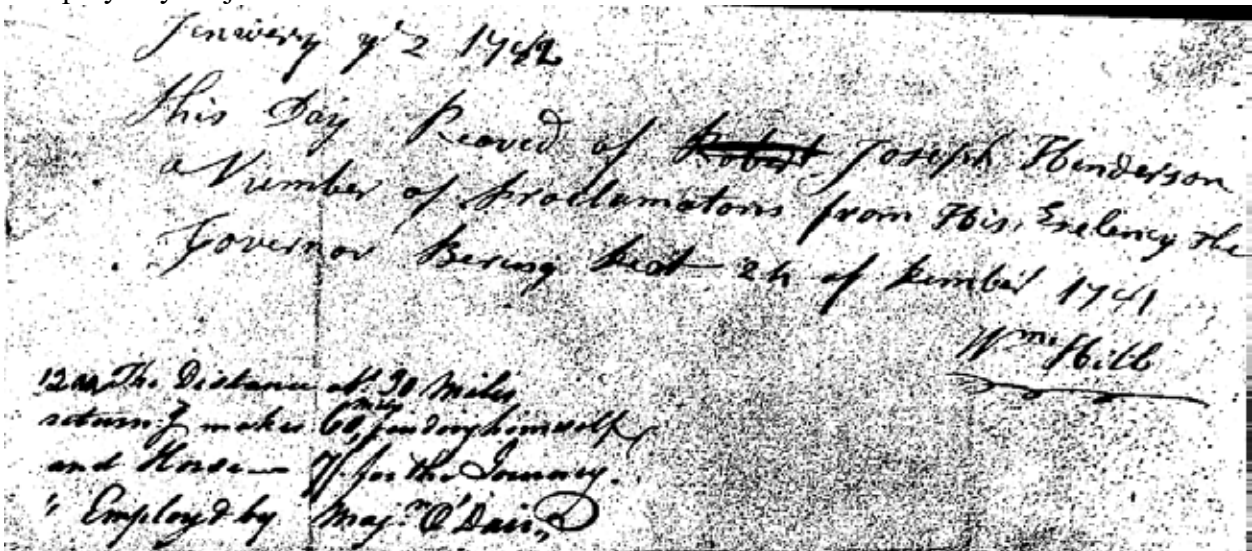 Jenwery ye 2 1782
this Day Reaved of Robert Joseph Henderson
a Number of Proclamatons from His Exelency the
Governor Bering Deat 24 of 1781
Wm Hill
The Distance at 30 Miles
return.g makes 60 finding himself
and Horse — 7/ for the Journey.
Employ'd by Maj.r O'Dair